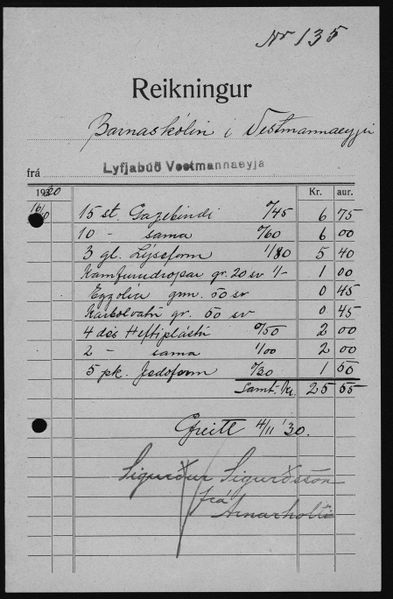 Nr 135
Reikningur
Barnaskólin í Vestmannaeyjr
frá Lyfjabúð Vestmannaeyja
1930 Kr. aur.
16/10 15 st. Gazebindi 0/45 6 75
10 - sama 0/60 6 00
3 gl. Lýsoform 1/80 5 40
Kamfurudropar gr. 20 sv 1/- 1 00
gm. 50 sv 0 45
Karbolvatn gr. 50 sv 0 45
4 dós Heftiplástr 0/50 2 00
2 - sama 1/00 2 00
5 pk. Jodoform /30 1 50
Samt. Kr. 25 55
Greitt 4/11 '30.
Sigurður Sigurðsson
frá
Arnarholti